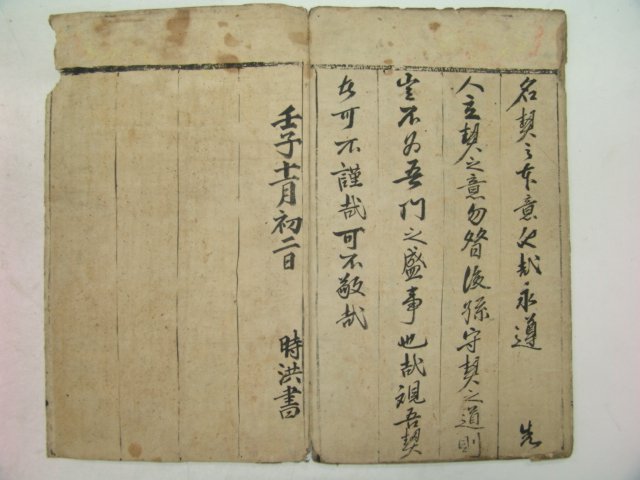 名契之本意也哉永遵 先
人立契之意勿替後孫守契之道則
豈不爲吾門之盛事也哉覌吾契
者可不謹哉可不敬哉
壬子十一月初二日 時洪書